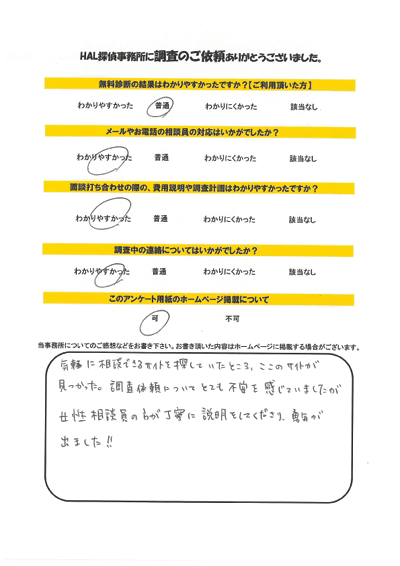 HAL探偵事務所に調査のご依頼ありがとうございました。
無料診断の結果はわかりやすかったですか?【ご利用頂いた方】
わかりやすかった 普通 わかりにくかった 該当なし
メールやお電話の相談員の対応はいかがでしたか?
わかりやすかった 普通 わかりにくかった 該当なし
面談打ち合わせの際の、費用説明や調査計画はわかりやすかったですか?
わかりやすかった 普通 わかりにくかった 該当なし
調査中の連絡についてはいかがでしたか?
わかりやすかった 普通 わかりにくかった 該当なし
このアンケート用紙のホームページ掲載について
可 不可
当事務所についてのご感想などをお書き下さい。お書き頂いた内容はホームページに掲載する場合がございます。
気軽に相談できるサイトを探していたところ、ここのサイトが
見つかった。調査依頼についてとても不安を感じていましたが
女性相談員の方が丁寧に説明をしてくださり、勇気が
出ました!!